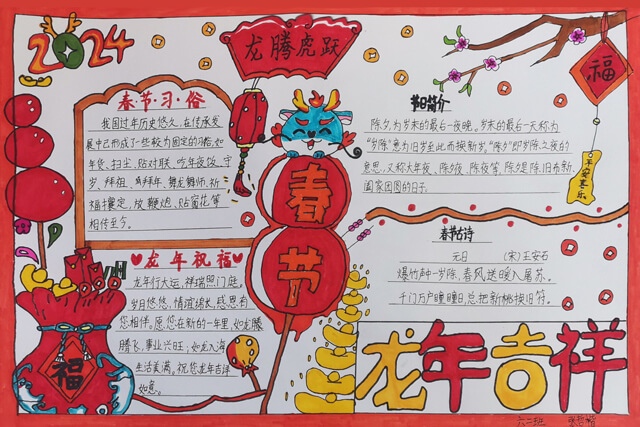 2024
龙腾虎跃
春·节·习·俗
我国过年历史悠久,在传承发
展中已形成了一些较为固定的习俗,如
年货、扫尘、贴对联、吃年夜饭、守
岁、拜祖、拜年、舞龙舞师、祈
福攘定、放鞭炮、贴窗花等
相传至今。
节日简介
除夕,为岁末的最后一夜晚。岁末的最后一天称为
“岁除”意为旧岁至此而换新岁。“除夕”即岁除之夜的
意思,又称大年夜、除夕夜、除夜等,除夕是除旧布新
阖家团圆的日子。
福
平安喜乐
春节
春节古诗
元日 (宋)王安石
爆竹声中一岁除,春风送暖入屠苏。
千门万户曈曈日,总把新桃换旧符。
龙年祝福
龙年行大运,祥瑞照门庭。
岁月悠悠,情谊绵长,感恩有
您相伴。愿您在新的一年里,如龙腾
腾飞,事业兴旺;如龙入海
生活美满。祝您龙年吉祥
如意。
福
龙年吉祥
六二班